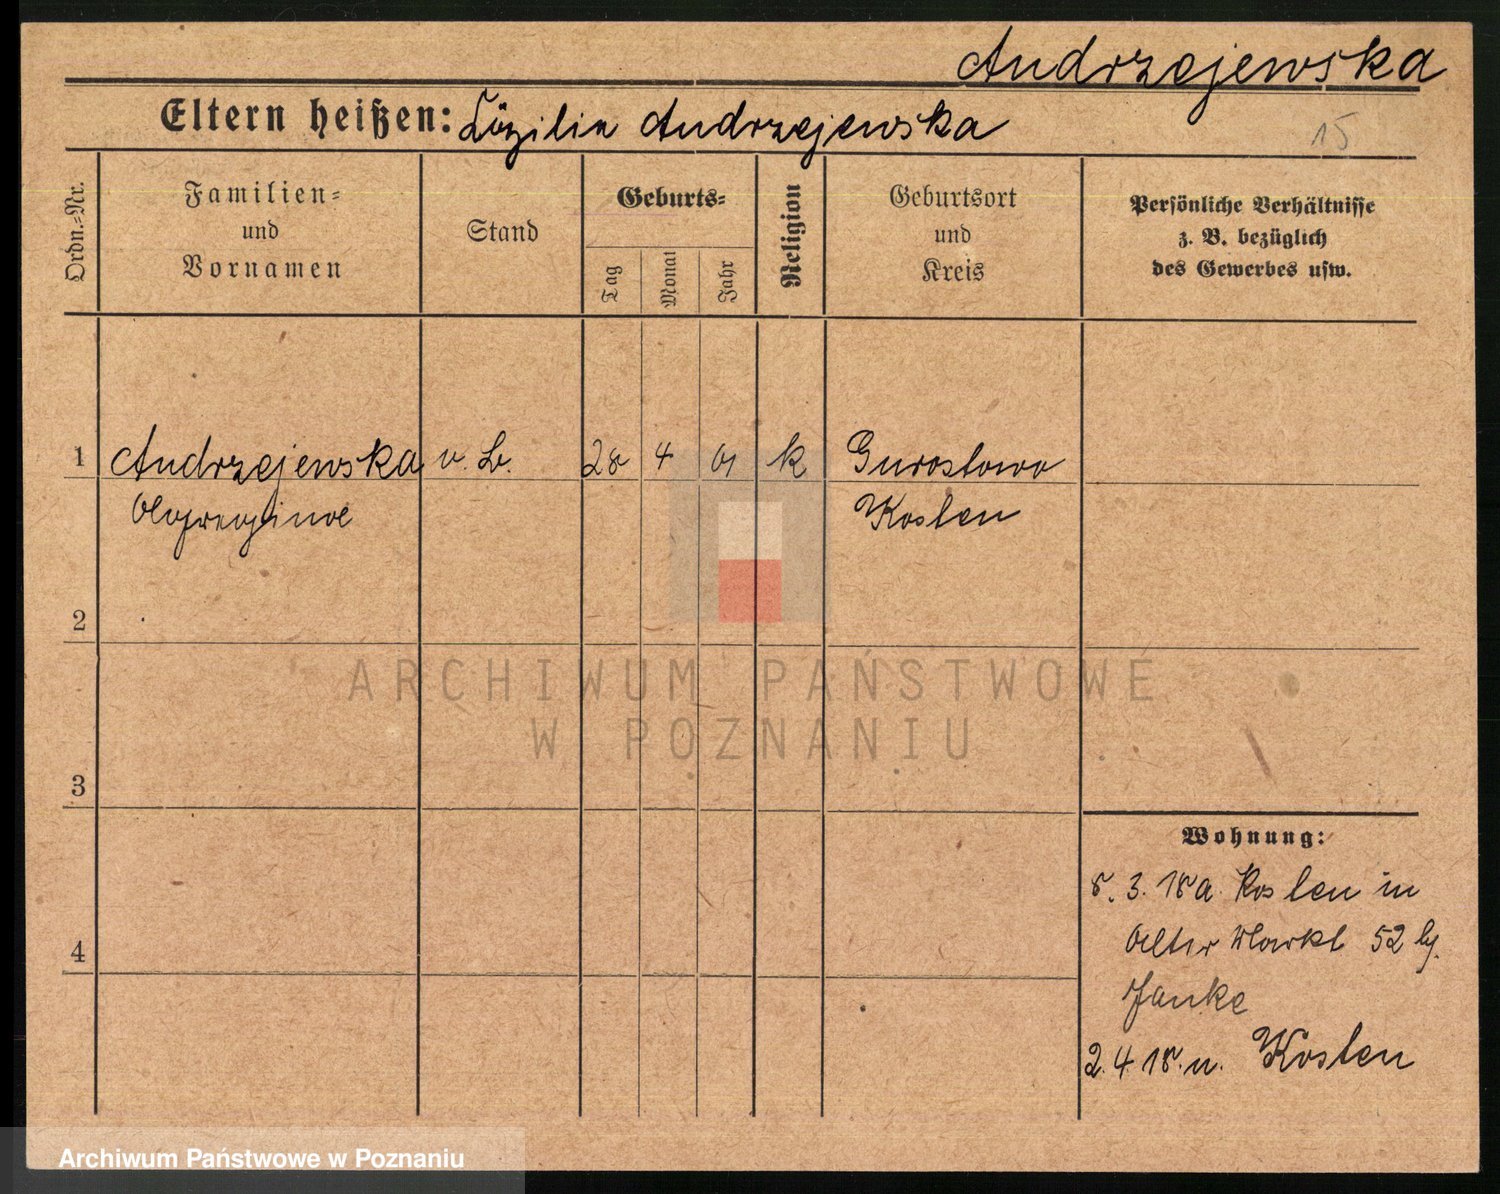 Andrzejewska
Eltern heißen: Cäzilie Andrzejewska
15
Ordn.=Nr.
Familien=
und
Vornamen
Stand
Geburts=
Tag
Monat
Jahr
Religion
Geburtsort
und
Kreis
Persönliche Verhältnisse
z. B. bezüglich
des Gewerbes usw.
1 Andrzejewska 28 4 01 k
Kosten
2
ARCHIWUM PAŃSTWOWE
W POZNANIU
3
Wohnung:
8. 3. 18 a. Kosten in
4 Alter Markt 52 bj.
Janke
2. 4 18. n. Kosten
Archiwum Państwowe w Poznaniu